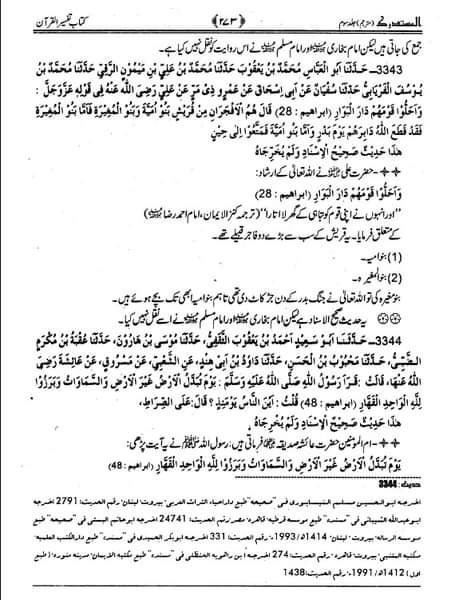 المستدرک (مترجم) جلد سوم ﴿۲۷۳﴾ کتاب تفسیر القرآن
جمع کی جاتی ہیں لیکن امام بخاری اور امام مسلم نے اس روایت کو نقل نہیں کیا ہے۔
3343– حَدَّثَنَا أَبُو الْعَبَّاسِ مُحَمَّدُ بْنُ يَعْقُوبَ حَدَّثَنَا مُحَمَّدُ بْنُ عَلِيِّ بْنِ مَيْمُونِ الرَّقِّيُّ حَدَّثَنَا مُحَمَّدُ بْنُ
يُوسُفَ الْفَرْيَابِيُّ حَدَّثَنَا سُفْيَانُ عَنْ أَبِي إِسْحَاقَ عَنْ عَمْرٍو ذِي مَرٍّ عَنْ عَلِيٍّ رَضِيَ اللّٰهُ عَنْهُ فِي قَوْلِهِ عَزَّوَجَلَّ :
وَاَحَلُّوا قَوْمَهُمْ دَارَ الْبَوَارِ (ابراهيم : 28) قَالَ هُمُ الْاَفْجَرَانِ مِنْ قُرَيْشٍ بَنُو اُمَيَّةَ وَبَنُو الْمُغِيْرَةِ فَاَمَّا بَنُو الْمُغِيْرَةِ
فَقَدْ قَطَعَ اللّٰهُ دَابِرَهُمْ يَوْمَ بَدْرٍ وَاَمَّا بَنُو اُمَيَّةَ فَمُتِّعُوْا اِلٰى حِيْنٍ
هٰذَا حَدِيْثٌ صَحِيْحُ الْاِسْنَادِ وَلَمْ يُخَرِّجَاهُ
✦✦– حضرت علی نے اللہ تعالیٰ کے ارشاد:
وَاَحَلُّوا قَوْمَهُمْ دَارَ الْبَوَارِ (ابراهيم : 28)
’’اور انہوں نے اپنی قوم کو تباہی کے گھر لا اتارا‘‘ (ترجمہ کنزالایمان، امام احمد رضا)
کے متعلق فرمایا۔ یہ قریش کے سب سے بڑے دو فاجر قبیلے تھے۔
(1) بنو امیہ۔
(2) بنو المغیرہ۔
بنو مغیرہ کی تو اللہ تعالیٰ نے جنگ بدر کے دن جڑ کاٹ دی تھی تاہم بنو امیہ ابھی تک بچے ہوئے ہیں۔
یہ حدیث صحیح الاسناد ہے لیکن امام بخاری اور امام مسلم نے اسے نقل نہیں کیا۔
3344– اَخْبَرَنَا اَبُو سَعِيدٍ اَحْمَدُ بْنُ يَعْقُوبَ الثَّقَفِيُّ، حَدَّثَنَا مُوْسَى بْنُ هَارُوْنَ، حَدَّثَنَا عُقْبَةُ بْنُ مُكْرَمٍ
الضَّبِّيُّ، حَدَّثَنَا مَحْبُوْبُ بْنُ الْحَسَنِ، حَدَّثَنَا دَاوُدُ بْنُ اَبِيْ هِنْدٍ، عَنِ الشَّعْبِيِّ، عَنْ مَسْرُوْقٍ، عَنْ عَائِشَةَ رَضِيَ
اللّٰهُ عَنْهَا، قَالَتْ: قَرَاَ رَسُوْلُ اللّٰهِ صَلَّى اللّٰهُ عَلَيْهِ وَسَلَّمَ : يَوْمَ تُبَدَّلُ الْاَرْضُ غَيْرَ الْاَرْضِ وَالسَّمَاوَاتُ وَبَرَزُوْا
لِلّٰهِ الْوَاحِدِ الْقَهَّارِ (ابراهيم : 48) قُلْتُ: اَيْنَ النَّاسُ يَوْمَئِذٍ ؟ قَالَ: عَلَى الصِّرَاطِ،
هٰذَا حَدِيْثٌ صَحِيْحُ الْاِسْنَادِ وَلَمْ يُخَرِّجَاهُ
✦✦– ام المومنین حضرت عائشہ صدیقہ فرماتی ہیں: رسول اللہ ﷺ نے یہ آیت پڑھی:
يَوْمَ تُبَدَّلُ الْاَرْضُ غَيْرَ الْاَرْضِ وَالسَّمَاوَاتُ وَبَرَزُوْا لِلّٰهِ الْوَاحِدِ الْقَهَّارِ (ابراهيم : 48)
حدیث: 3344
اخرجه ابوالحسين مسلم النيسابورى فى "صحيحه" طبع داراحياء التراث العربى، بيروت، لبنان، رقم الحديث: 2791 اخرجه
ابو عبدالله الشيبانى فى "مسنده" طبع موسسه قرطبه، قاهره، مصر، رقم الحديث: 24741 اخرجه ابوحاتم البستى فى "صحيحه" طبع
موسسه الرساله، بيروت، لبنان، 1414ه/1993ء، رقم الحديث: 331 اخرجه ابوبكر الحميدى فى "مسنده" طبع دارالكتب العلميه،
مكتبه المتنبى، بيروت، قاهره، رقم الحديث: 274 اخرجه ابن راهويه الحنظلى فى "مسنده" طبع مكتبه الايمان، مدينه منوره، (طبع
اول) 1412ه/1991ء، رقم الحديث: 1438